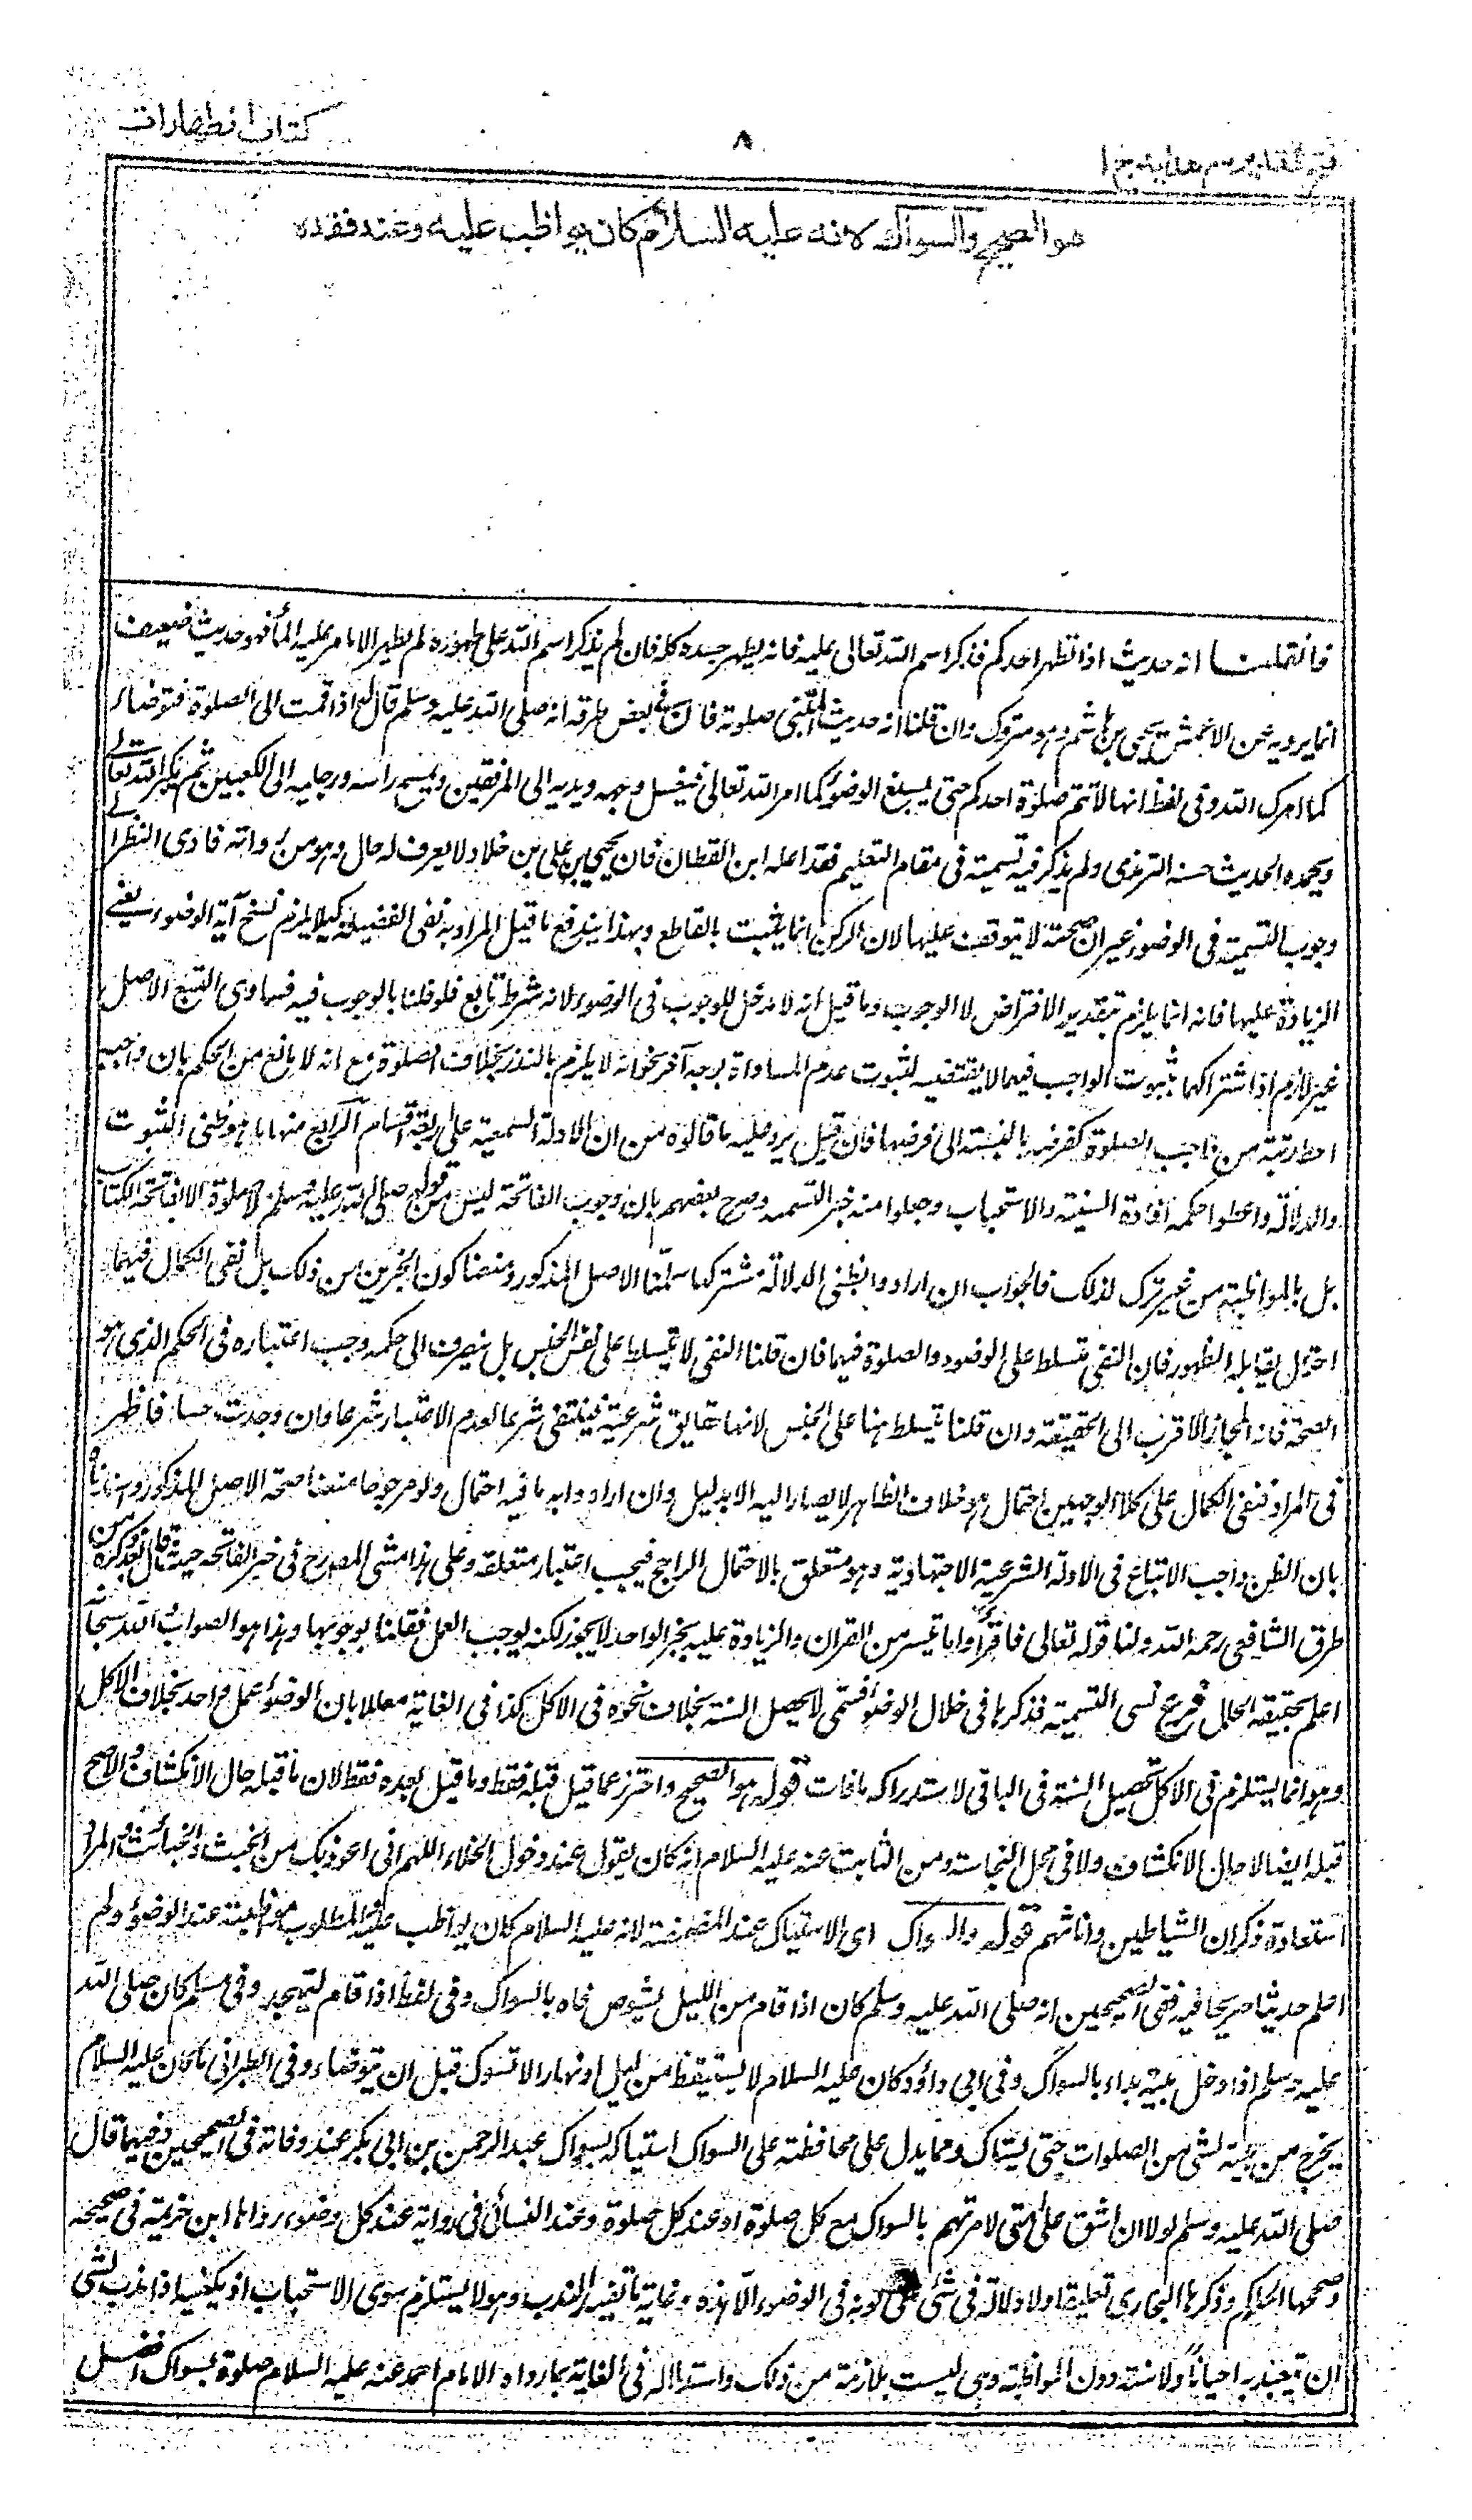 كتاب الطهارات
٨
فتح القدير مع هدايه ج ١
هو الصحيح والسواك لانه عليه السلام كان يواظب عليه وعند فقده
فان قلنا انه حديث اذا تطهر احدكم فذكر اسم الله تعالى عليه فانه يطهر جسده كله فان لم يذكر اسم الله على طهوره لم يطهر الا ما مر عليه الماء فهو حديث ضعيف
انما يرويه عن الاعمش يحيى بن هاشم وهو متروك وان قلنا انه حديث المسئ صلوته فان فى بعض طرقه انه صلى الله عليه وسلم قال له اذا قمت الى الصلوة فتوضاء
كما امرك الله وفى لفظ انها لا تتم صلوة احدكم حتى يسبغ الوضوء كما امر الله تعالى فيغسل وجهه ويديه الى المرفقين ويمسح راسه ورجليه الى الكعبين ثم يكبر الله تعالى
ويحمده الحديث حسنه الترمذى ولم يذكر فيه تسمية فى مقام التعليم فقد اعله ابن القطان فان يحيى بن على بن خلاد لا يعرف له حال وهو من رواته فادى النظر الى
وجوب التسمية فى الوضوء غير ان صحته لا تتوقف عليها لان الركن انما يثبت بالقاطع وبهذا يندفع ما قيل المراد به نفى الفضيلة كيلا يلزم نسخ آية الوضوء يعنى
الزيادة عليها فانه انما يلزم بتقدير الافتراض لا الوجوب وما قيل انه لا مدخل للوجوب فى الوضوء لانه شرط تابع فلو قلنا بالوجوب فيه فساوى التبع الاصل
غير لازم اذا اشتراكهما بثبوت الواجب فيهما لا يقتضيه لثبوت عدم المساواة بوجه آخر نحو انه لا يلزم بالنذر بخلاف الصلوة مع انه لا مانع من الحكم بان واجبه
احط رتبة من واجب الصلوة كفرضه بالنسبة الى فرضها فان قيل يرد عليه ما قالوه من ان الادلة السمعية على اربعة اقسام الرابع منها ما هو ظنى الثبوت
والدلالة واعطوا حكمه افادة السنية والاستحباب وجعلوا منه خبر التسمية وصرح بعضهم بان وجوب الفاتحة ليس من قوله صلى الله عليه وسلم لا صلوة الا بفاتحة الكتاب
بل بالمواظبة من غير ترك لذلك فالجواب ان ارادوا بظنى الدلالة مشتركها سلمنا الاصل المذكور ومنعنا كون الخبرين من ذلك بل نفى الكمال فيهما
احتمال يقابله الظهور فان النفى متسلط على الوضوء والصلوة فيهما فان قلنا النفى لا يتسلط على نفس الجنس بل ينصرف الى حكمه وجب اعتباره فى الحكم الذى هو
الصحة فانه المجاز الاقرب الى الحقيقة وان قلنا يتسلط هنا على الجنس لانها حقايق شرعية فينتفى شرعا لعدم الاعتبار شرعا وان وجدت حسا فاظهر
فى المراد فنفى الكمال على كلا الوجهين احتمال هو خلاف الظاهر لا يصار اليه الا بدليل وان ارادوا به ما فيه احتمال ولو مرجوحا منعنا صحة الاصل المذكور واسندناه
بان الظن واجب الاتباع فى الادلة الشرعية الاجتهادية وهو متعلق بالاحتمال الراجح فيجب اعتبار متعلقه وعلى هذا مشى المصرح فى خبر الفاتحة حيث قال بعد ذكره من
طرق الشافعى رحمه الله ولنا قوله تعالى فاقرؤا ما تيسر من القران والزيادة عليه بخبر الواحد لا يجوز لكنه يوجب العمل فقلنا بوجوبها وهذا هو الصواب والله سبحانه
اعلم بحقيقة الحال فرع نسى التسمية فذكرها فى خلال الوضوء فسمى لا يحصل السنة بخلاف نحوه فى الاكل كذا فى الغاية معللا بان الوضوء عمل واحد بخلاف الاكل
وهو انما يستلزم فى الاكل تحصيل السنة فى الباقى لا استدراك ما فات قوله هو الصحيح واحترز عما قيل قبله فقط وما قيل بعده فقط لان ما قبله حال الانكشاف والاصح
قبله ايضا لا حال الانكشاف ولا فى محل النجاسة ومن الثابت عنه عليه السلام انه كان يقول عند دخول الخلاء اللهم انى اعوذ بك من الخبث والخبائث والمراد
استعاذة ذكران الشياطين واناثهم قوله والسواك اى الاستياك عند المضمضة لانه عليه السلام كان يواظب عليه المطلوب مواظبته عند الوضوء ولم
اعلم حديثا صريحا فيه ففى الصحيحين انه صلى الله عليه وسلم كان اذا قام من الليل يشوص فاه بالسواك وفى لفظ اذا قام ليتهجد وفى مسلم كان صلى الله
عليه وسلم اذا دخل بيته بداء بالسواك وفى ابى داؤد كان عليه السلام لا يستيقظ من ليل او نهار الا تسوك قبل ان يتوضاء وفى الطبرانى ما كان عليه السلام
يخرج من بيته لشئ من الصلوات حتى يستاك ومما يدل على محافظته على السواك استياكه بسواك عبد الرحمن بن ابى بكر عند وفاته فى الصحيحين وفيهما قال
صلى الله عليه وسلم لولا ان اشق على امتى لامرتهم بالسواك مع كل صلوة او عند كل صلوة وعند النسائى فى رواية عند كل وضوء رواها ابن خزيمة فى صحيحه
وصححها الحاكم وذكرها البخارى تعليقا ولا دلالة فى شئ على كونه فى الوضوء الا هذه وغاية ما تفيد الندب وهو لا يستلزم سوى الاستحباب اذ يكفيه اذا ندب لشئ
ان يتعبد به احيانا ولا سنة دون المواظبة وهى ليست بلازمة من ذلك واستدلاله فى الغاية بما رواه الامام احمد عنه عليه السلام صلوة بسواك افضل